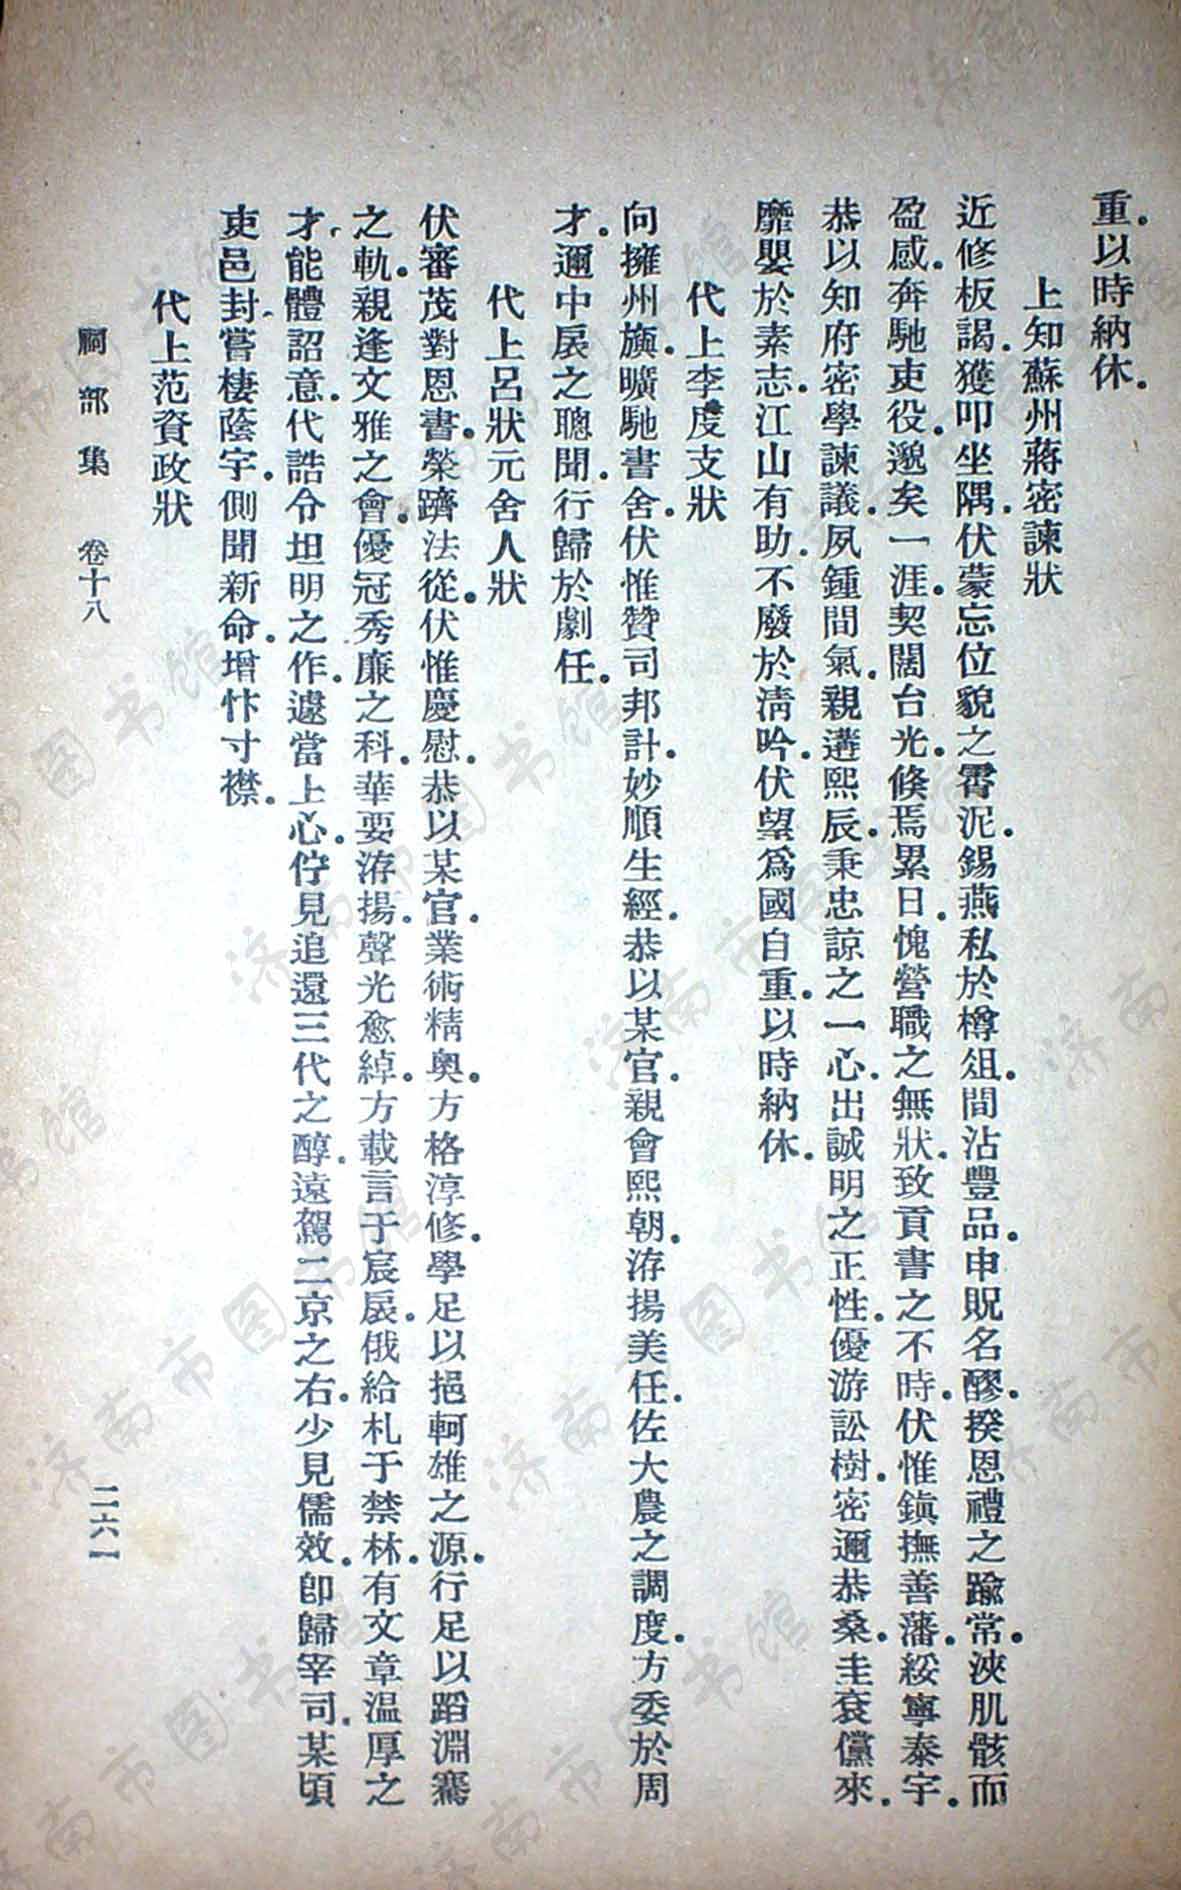 重。以時納休。
上知蘇州蔣密諫狀
近修板謁。獲叩坐隅。伏蒙忘位貌之霄泥。錫燕私於樽俎。間沾豐品。申貺名醪。揆恩禮之踰常。浹肌骸而
盈感。奔馳吏役。邈矣一涯。契闊台光。倏焉累日。愧營職之無狀。致貢書之不時。伏惟鎮撫善藩。綏寧泰宇。
恭以知府密學諫議。夙鍾間氣。親遘熙辰。秉忠諒之一心。出誠明之正性。優游訟樹。密邇恭桑。圭袞儻來。
靡嬰於素志。江山有助。不廢於淸吟。伏望爲國自重。以時納休。
代上李度支狀
向擁州旟。曠馳書舍。伏惟贊司邦計。妙順生經。恭以某官。親會熙朝。洊揚美任。佐大農之調度。方委於周
才。邇中扆之聰聞。行歸於劇任。
代上呂狀元舍人狀
伏審茂對恩書。榮躋法從。伏惟慶慰。恭以某官。業術精奥。方格淳修。學足以挹軻雄之源。行足以蹈淵騫
之軌。親逢文雅之會。優冠秀廉之科。華要洊揚。聲光愈綽。方載言于宸扆。俄給札于禁林。有文章温厚之
才。能體詔意。代誥令坦明之作。遽當上心。佇見追還三代之醇。遠駕二京之右。少見儒效。卽歸宰司。某頃
吏邑封。嘗棲蔭宇。側聞新命。增忭寸襟。
代上范資政狀
祠部集 卷十八 二六一
济南市图书馆